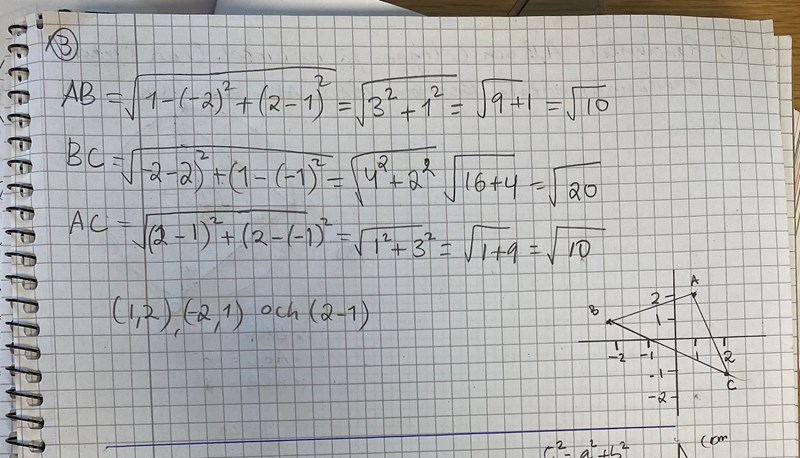 3
AB = √1-(-2)² + (2-1)² = √3² + 1² = √9+1 = √10
BC = √-2-2)² + (1-(-1)² = √4² + 2² √16+4 = √20
AC = √(2-1)² + (2-(-1)² = √1² + 3² = √1+9 = √10
(1,2), (-2,1) och (2-1)
A
2
B
1
-2 -1 1 2
-1
C
-2
c² = a² + b²